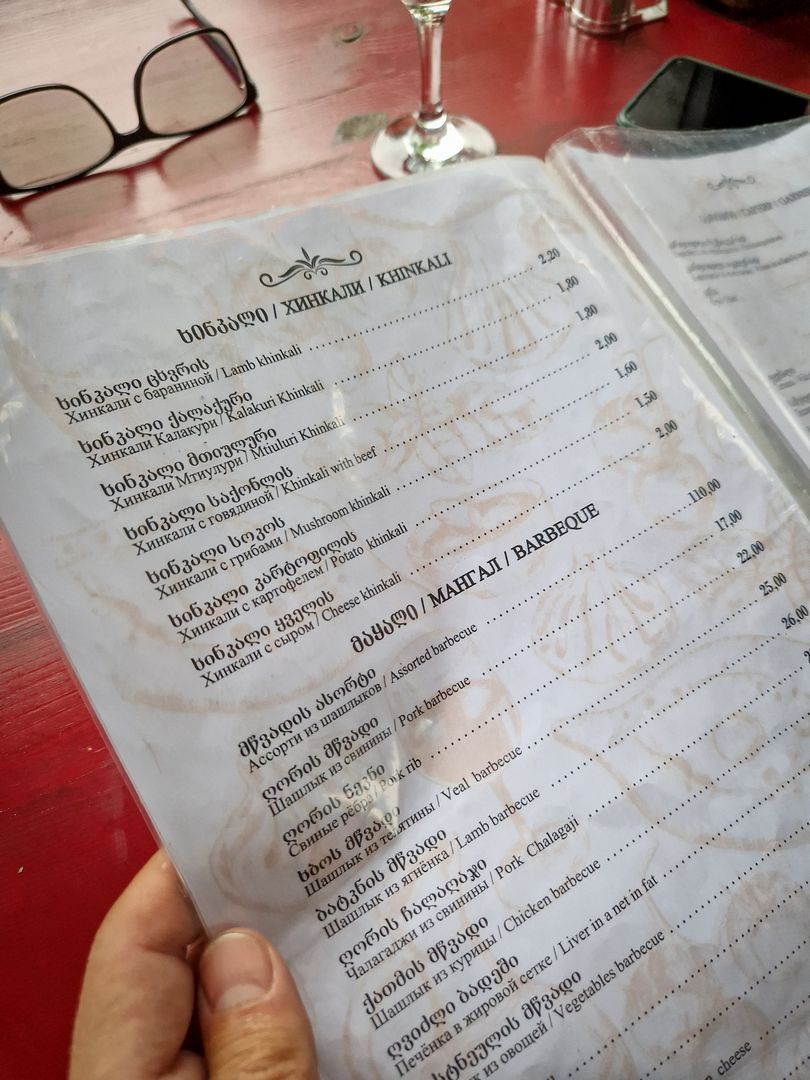 ხინკალი / ХИНКАЛИ / KHINKALI
ხინკალი ცხვრის
Хинкали с бараниной / Lamb khinkali 2,20
ხინკალი ქალაქური
Хинкали Калакури / Kalakuri Khinkali 1,80
ხინკალი მთიულური
Хинкали Мтиулури / Mtiuluri Khinkali 1,80
ხინკალი საქონლის
Хинкали с говядиной / Khinkali with beef 2,00
ხინკალი სოკოს
Хинкали с грибами / Mushroom khinkali 1,60
ხინკალი კარტოფილის
Хинкали с картофелем / Potato khinkali 1,50
ხინკალი ყველის
Хинкали с сыром / Cheese khinkali 2,00
მაყალი / МАНГАЛ / BARBEQUE
მწვადის ასორტი
Ассорти из шашлыков / Assorted barbecue 110,00
ღორის მწვადი
Шашлык из свинины / Pork barbecue 17,00
ღორის ნეკნი
Свиные рёбра / Pork rib 22,00
ხბოს მწვადი
Шашлык из телятины / Veal barbecue 25,00
ბატკნის მწვადი
Шашлык из ягнёнка / Lamb barbecue 26,00
ღორის ჩალაღაჯი
Чалагаджи из свинины / Pork Chalagaji
ქათმის მწვადი
Шашлык из курицы / Chicken barbecue
ღვიძლი ბადეში
Печёнка в жировой сетке / Liver in a net in fat
მწვადი
из овощей / Vegetables barbecue
cheese